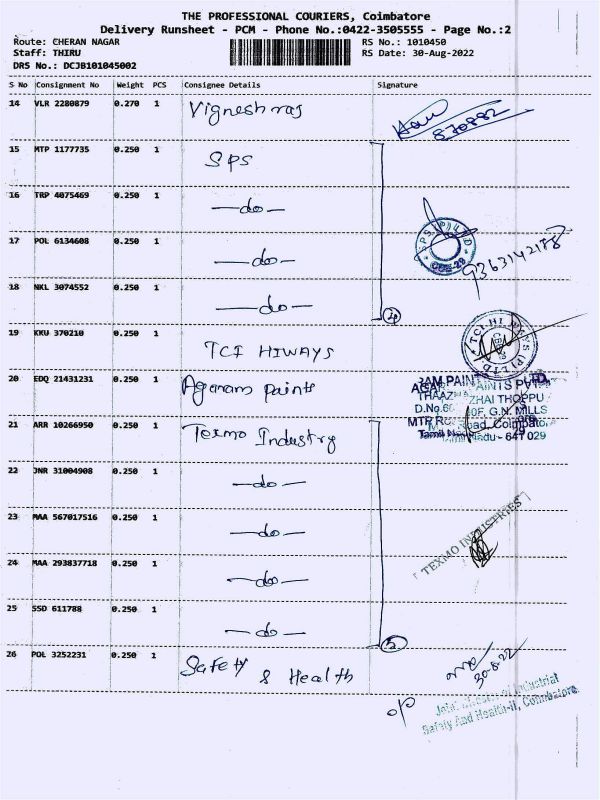 THE PROFESSIONAL COURIERS, Coimbatore
Delivery Runsheet - PCM - Phone No.:0422-3505555 - Page No.:2
Route: CHERAN NAGAR RS No.: 1010450
Staff: THIRU RS Date: 30-Aug-2022
DRS No.: DCJB101045002
S No Consignment No Weight PCS Consignee Details Signature
14 VLR 2280879 0.270 1 Vignesh raj
870882
15 MTP 1177735 0.250 1 SPS
16 TRP 4075469 0.250 1 —do—
17 POL 6134608 0.250 1 —do— SPS (P) LTD 9363142178
18 NKL 3074552 0.250 1 —do—
19 KKU 370210 0.250 1 TCI HIWAYS TCI HI WAYS (P) LTD
20 EDQ 21431231 0.250 1 Aganam paints
21 ARR 10266950 0.250 1 Texmo Industry
22 JNR 31004908 0.250 1 —do—
23 MAA 567017516 0.250 1 —do— TEXMO INDUSTRIES
24 MAA 293837718 0.250 1 —do—
25 SSD 611788 0.250 1 —do— 5
26 POL 3252231 0.250 1 Safety & Health 30-8-22
Industrial
Safety And Health-II, Coimbatore